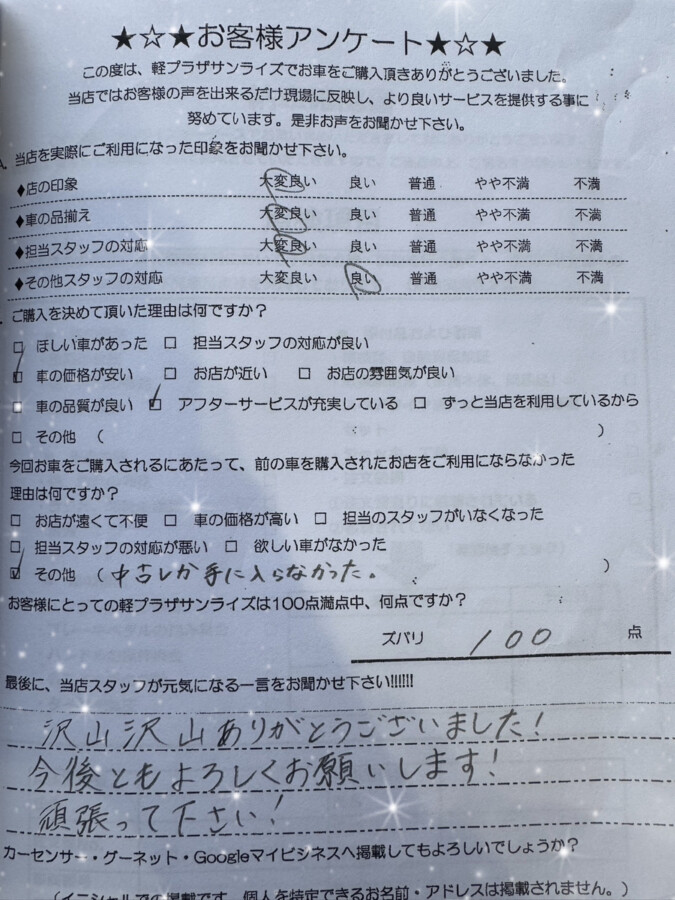 ★☆★お客様アンケート★☆★
この度は、軽プラザサンライズでお車をご購入頂きありがとうございました。
当店ではお客様の声を出来るだけ現場に反映し、より良いサービスを提供する事に
努めています。是非お声をお聞かせ下さい。
当店を実際にご利用になった印象をお聞かせ下さい。
◆店の印象 大変良い 良い 普通 やや不満 不満
◆車の品揃え 大変良い 良い 普通 やや不満 不満
◆担当スタッフの対応 大変良い 良い 普通 やや不満 不満
◆その他スタッフの対応 大変良い 良い 普通 やや不満 不満
ご購入を決めて頂いた理由は何ですか？
□ ほしい車があった □ 担当スタッフの対応が良い
☑ 車の価格が安い □ お店が近い □ お店の雰囲気が良い
□ 車の品質が良い ☑ アフターサービスが充実している □ ずっと当店を利用しているから
□ その他 （ ）
今回お車をご購入されるにあたって、前の車を購入されたお店をご利用にならなかった
理由は何ですか？
□ お店が遠くて不便 □ 車の価格が高い □ 担当のスタッフがいなくなった
□ 担当スタッフの対応が悪い □ 欲しい車がなかった
☑ その他 （中古しか手に入らなかった。 ）
お客様にとっての軽プラザサンライズは100点満点中、何点ですか？
ズバリ 100 点
最後に、当店スタッフが元気になる一言をお聞かせ下さい!!!!!!
沢山沢山ありがとうございました！
今後ともよろしくお願いします！
頑張って下さい！
カーセンサー・グーネット・Googleマイビジネスへ掲載してもよろしいでしょうか？
（イニシャルでの掲載です。個人を特定できるお名前・アドレスは掲載されません。）